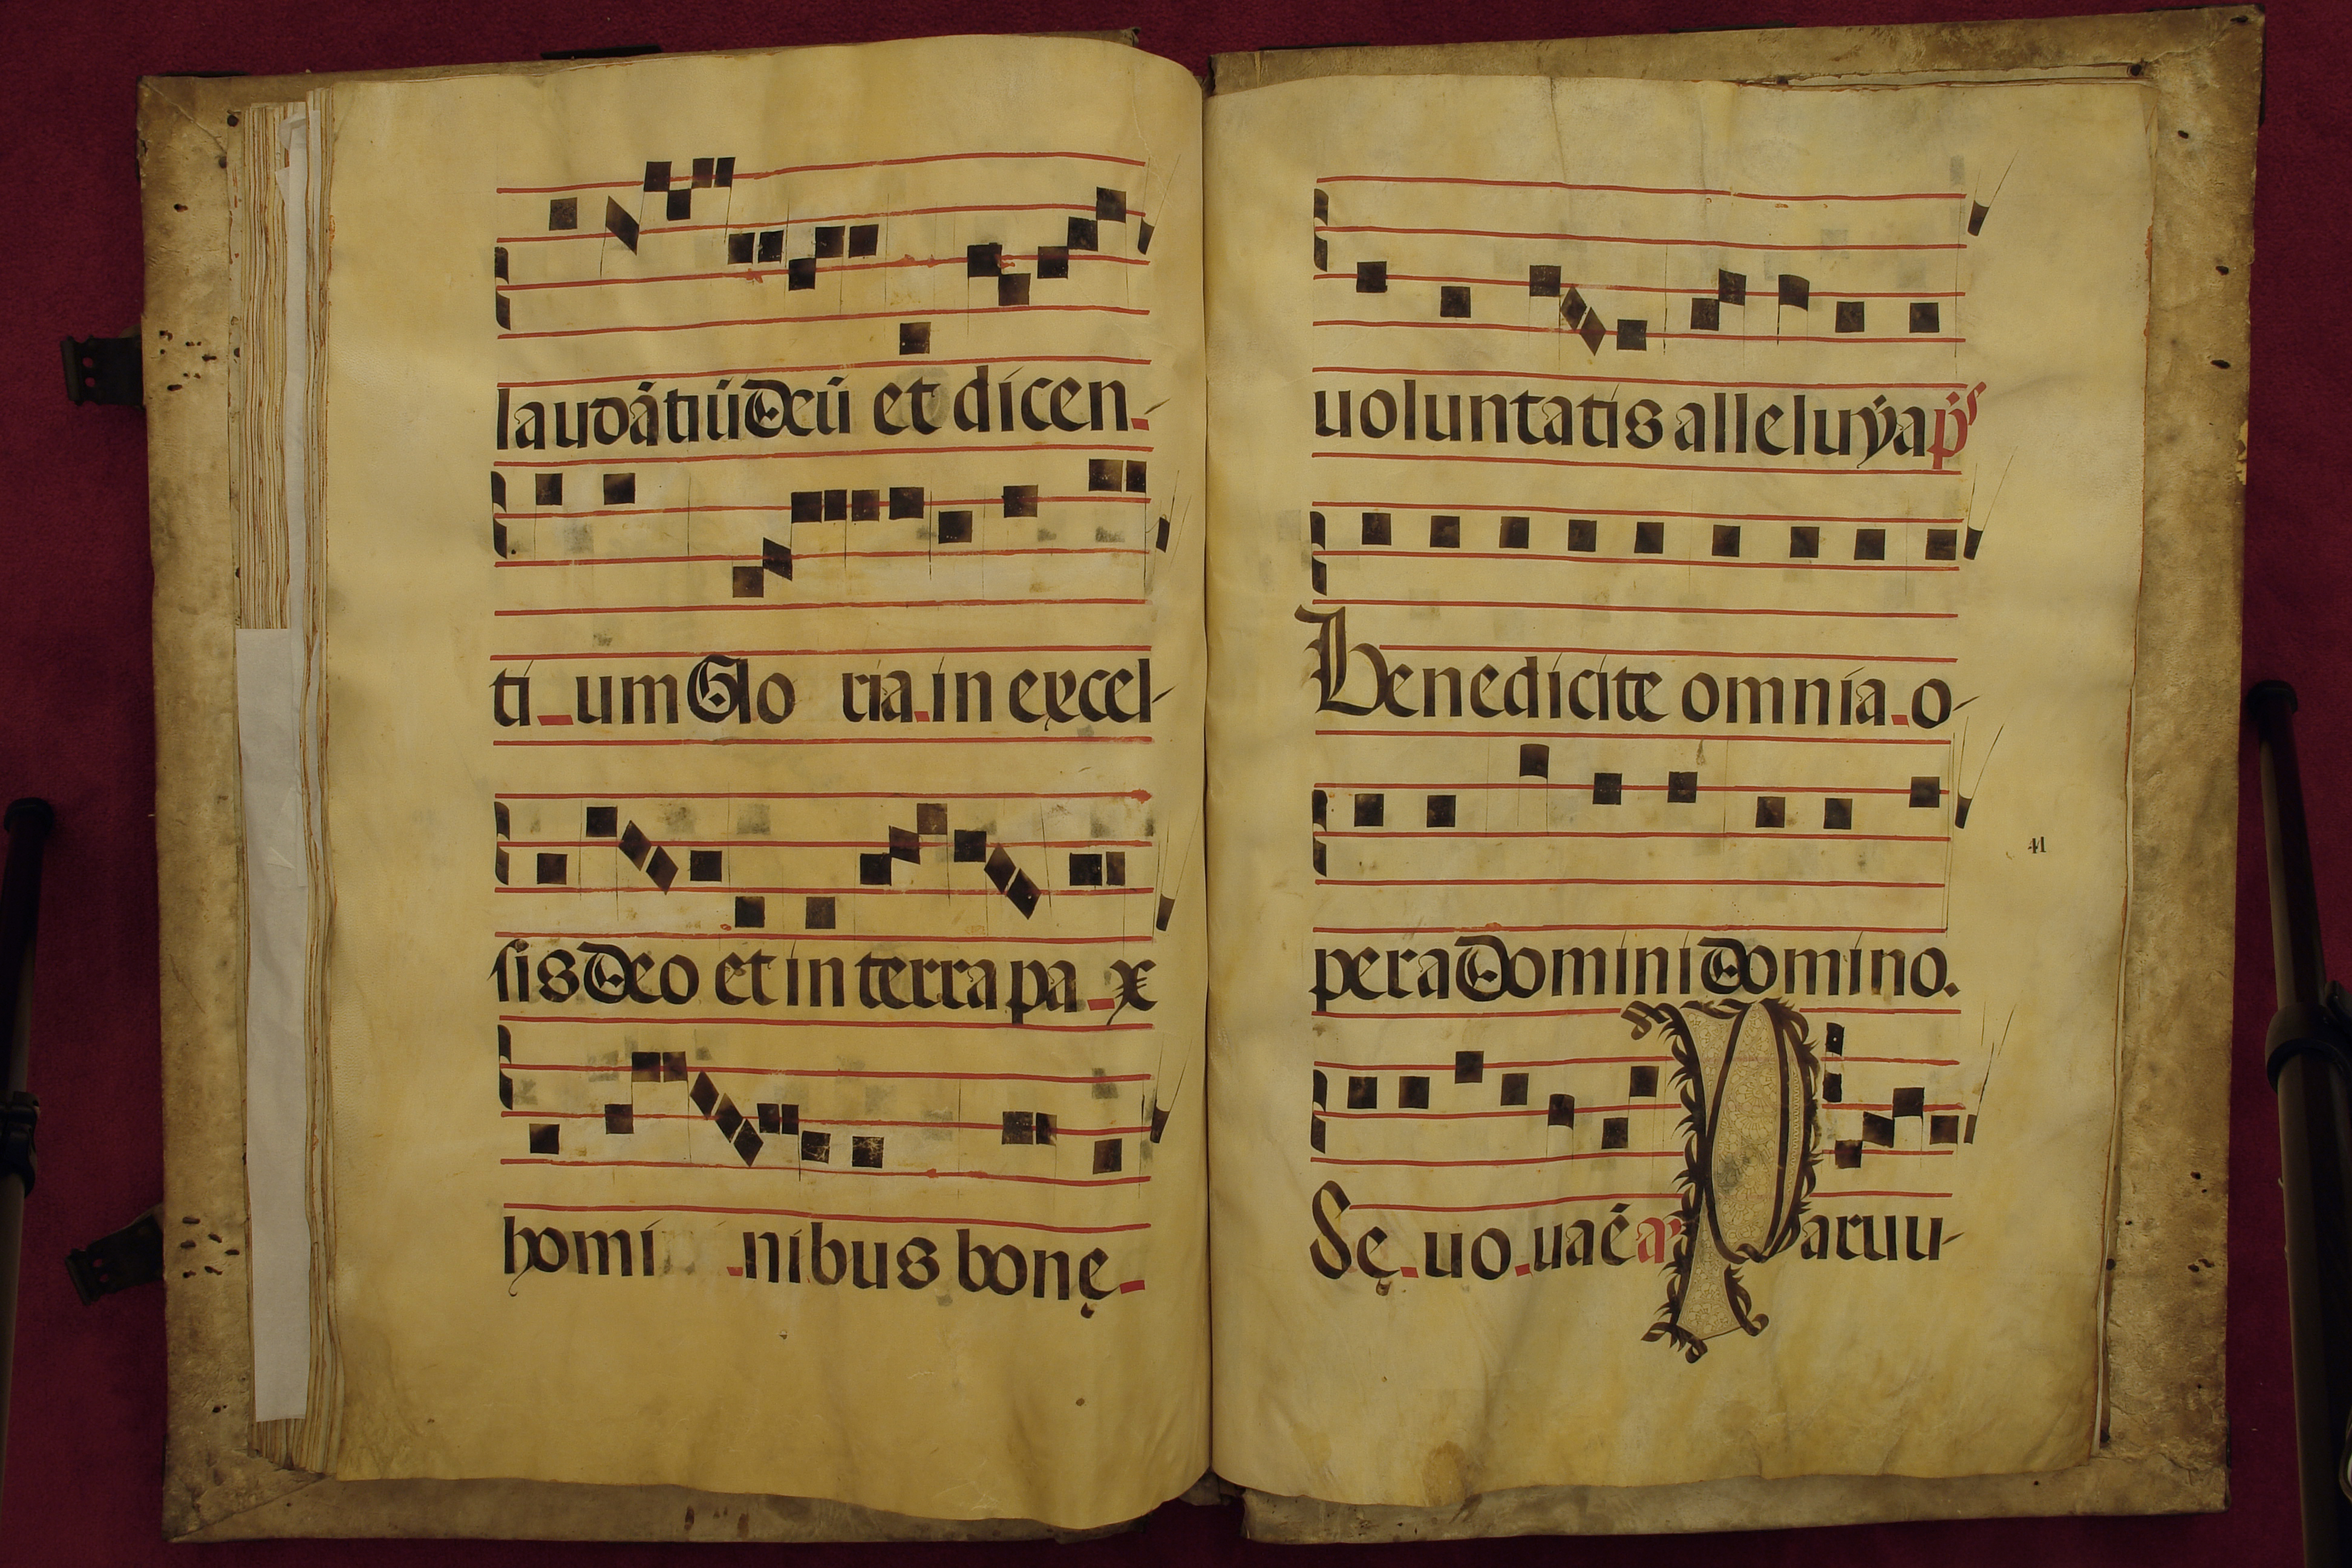 laudátiū Deū et dicen-
ti_um Glo ria in excel-
sis Deo et in terra pa_x
homi _nibus bonę_
uoluntatis alleluẏa ps
Benedicite omnia o-
41
pera Domini Domino.
Sę_uo_uaé añ Paruu-